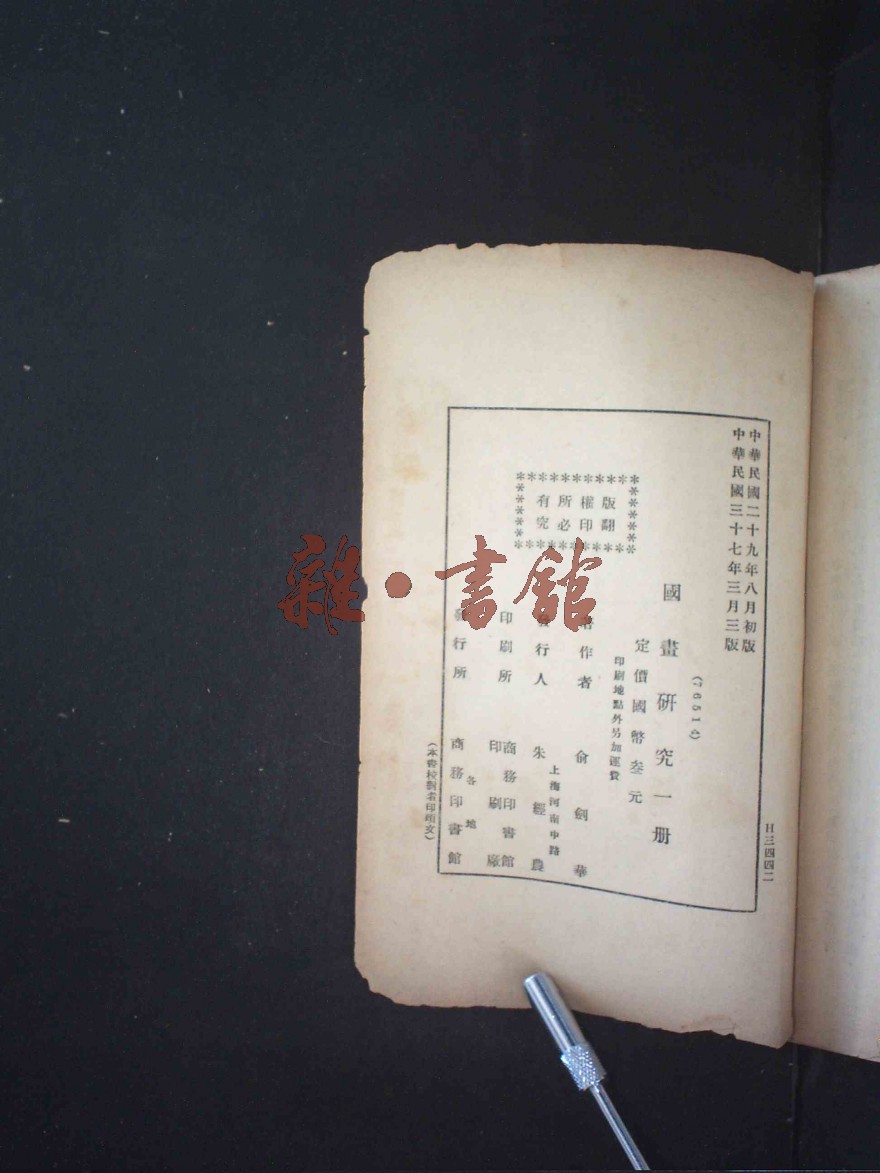 中華民國二十九年八月初版
中華民國三十七年三月三版
(76514)
國畫研究一册
定價國幣叁元
印刷地點外另加運費
版權所有
翻印必究
作者 俞劍華
發行人 朱經農
上海河南中路
印刷所 商務印書館
印刷廠
發行所 商務印書館
各地
(本書校對者印頌文)
H三四四二
雜·書館